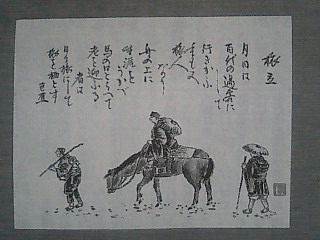 旅立
月日は
百代の過客に
して
行きかふ
年もまた
旅人
なり
舟の上に
生涯を
うかべ
馬の口とらへて
老を迎ふる
者は
日々旅にして
旅を栖とす
芭蕉